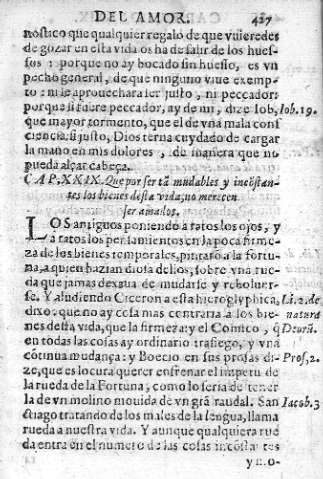 DEL AMOR. 427
nostico que qualquier regalo de que vuieredes
de gozar en esta vida os ha de salir de los hues-
sos: porque no ay bocado sin huesso, es vn
pecho general, de que ninguno viue exemp-
to: ni le aprouechara ser justo, ni peccador:
porque si fuere peccador, ay de mi, dize Iob, Iob.19.
que mayor tormento, que el de vna mala cons
ciencia. si justo, Dios terna cuydado de cargar
la mano en mis dolores, de manera que no
pueda alçar cabeça.
CAP. XXIX. Que por ser tã mudables y incõstan-
tes los bienes desta vida, no merecen
ser amados.
LOS antiguos poniendo a ratos los ojos, y
a ratos los pensamientos en la poca firme-
za de los bienes temporales, pintarõ a la fortu-
na, a quien hazian diosa dellos, sobre vna rue-
da que jamas dexaua de mudarse y reboluer-
se. Y aludiendo Ciceron a esta hieroglyphica, Li.2.de
dixo: que no ay cosa mas contraria a los bie- natura
nes desta vida, que la firmeza: y el Comico, q̃ Deorũ.
en todas las cosas ay ordinario trafiego, y vna
cõtinua mudança: y Boecio en sus prosas di- Pros,2.
ze, que es locura querer enfrenar el impetu de
la rueda de la Fortuna, como lo seria de tener
la de vn molino mouida de vn grã raudal. San
ctiago tratando de los males de la lengua, llama Iacob.3
rueda a nuestra vida. Y aunque qualquiera rue
da entra en el numero de las cosas incõstãtes